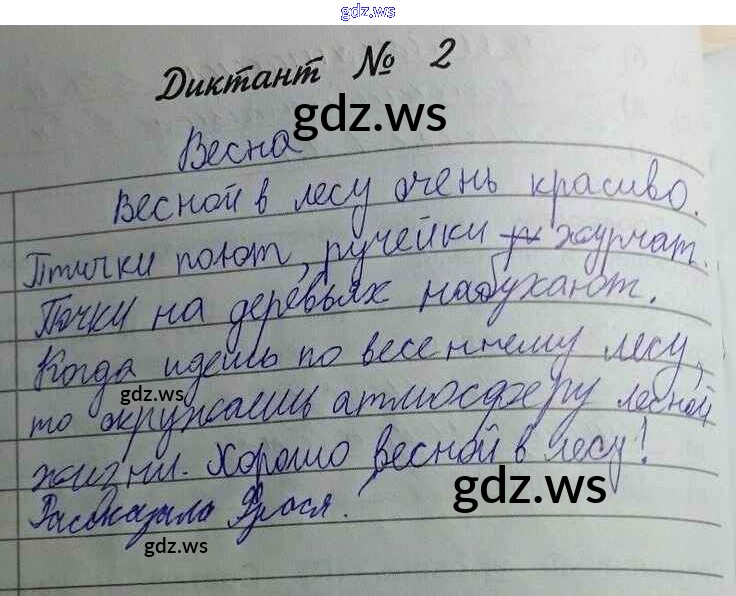 gdz.ws
Диктант № 2
gdz.ws
Весна
Весной в лесу очень красиво.
Птички поют, ручейки журчат.
Почки на деревьях набухают.
Когда идешь по весеннему лесу,
gdz.ws
то окружаешь атмосферу лесной
жизни. Хорошо весной в лесу!
gdz.ws
Рассказала Фрося.
gdz.ws